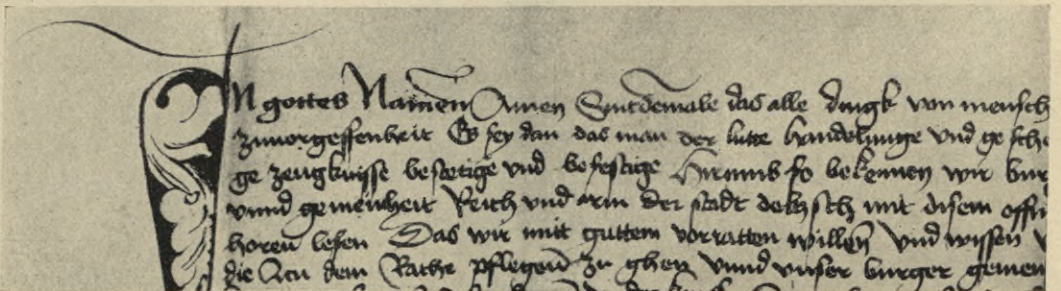 In gottes Namen Amen Sintdemale das alle dingk von mensch
zuuorgessenheit Es sey dan das man der lutte handelunge vnd gesche
ge zeugknisse bestetige vnd befestige Hirumb so bekennen wir bur
vnnd gemeinheit Reich vnd arm der stadt delitzsch mit disem offn
horen lesen Das wir mitt guttem vorratten willen vnd wissen
die zcu dem Rathe pflegen zu ghen vnnd vnser burger gemein